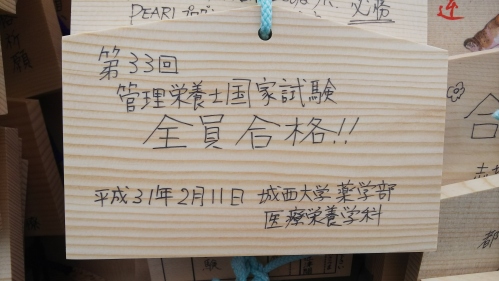 PEARL
必勝
第33回
管理栄養士国家試験
全員合格!!
平成31年2月11日 城西大学薬学部
医療栄養学科
合
都